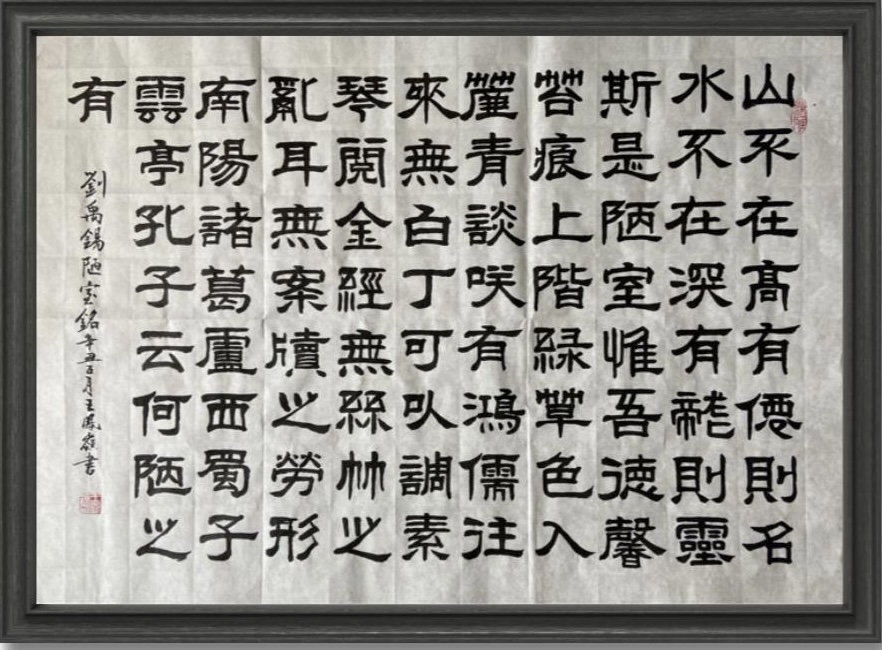 山不在高有僊則名
水不在深有龍則靈
斯是陋室惟吾德馨
苔痕上階緑草色入
簾青談咲有鴻儒往
來無白丁可以調素
琴閲金經無絲竹之
亂耳無案牘之勞形
南陽諸葛廬西蜀子
雲亭孔子云何陋之
有
劉禹錫陋室銘辛丑五月王鳳嶺書